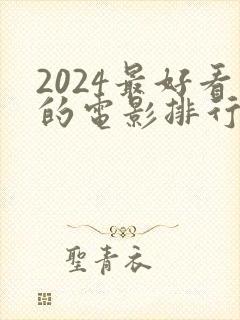 2024最好看
的電影排行
聖青衣